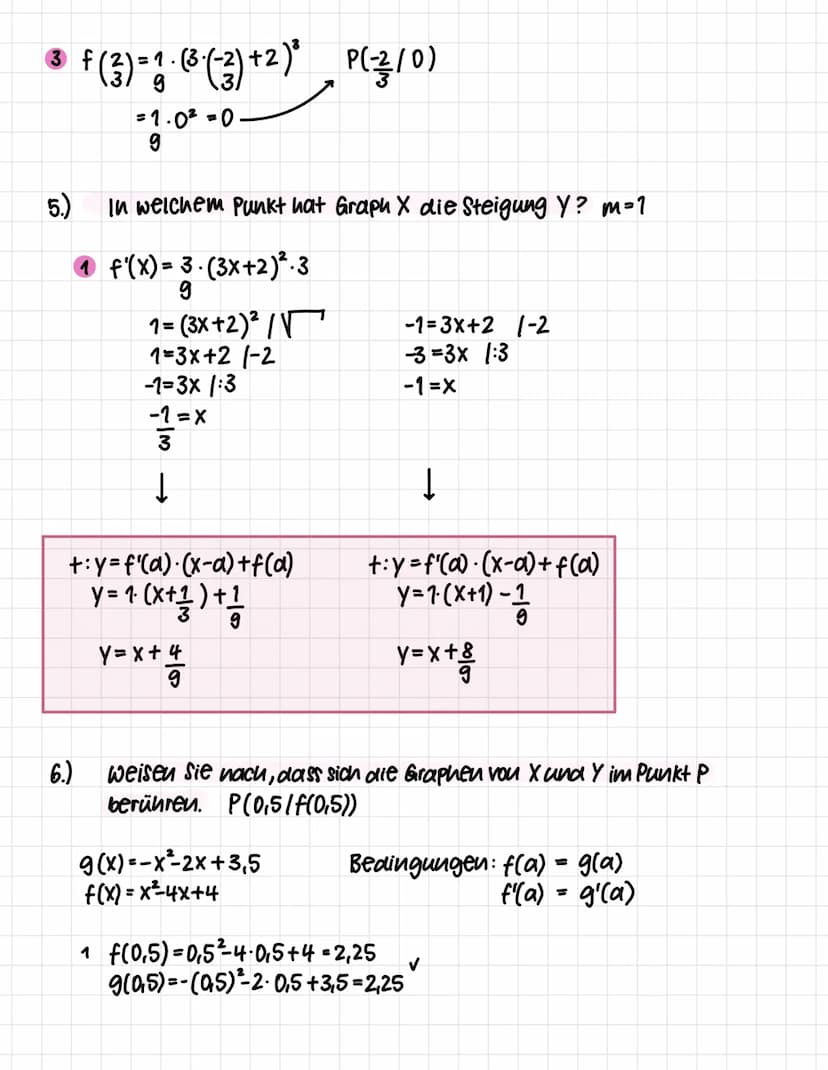 3 f(2/3) = 1/9 · (3·(-2/3)+2)³ P(-2/3 / 0)
= 1/9 · 0² = 0
5.) In welchem Punkt hat Graph X die Steigung Y? m=1
1 f'(x) = 3/9 · (3x+2)² · 3
1 = (3x+2)² /√
1=3x+2 /-2
-1=3x /:3
-1/3 = x
-1=3x+2 /-2
-3=3x /:3
-1=x
↓ ↓
t: y=f'(a)·(x-a)+f(a)
y= 1·(x+1/3)+1/9
y= x+4/9
t: y=f'(a)·(x-a)+f(a)
y=1·(x+1) - 1/9
y=x+8/9
6.) Weisen Sie nach, dass sich die Graphen von X und Y im Punkt P
berühren. P(0,5/f(0,5))
g(x)=-x²-2x+3,5
f(x)=x²-4x+4
Bedingungen: f(a) = g(a)
f'(a) = g'(a)
1 f(0,5)=0,5²-4·0,5+4=2,25
g(0,5)=-(0,5)²-2·0,5+3,5=2,25 ✓